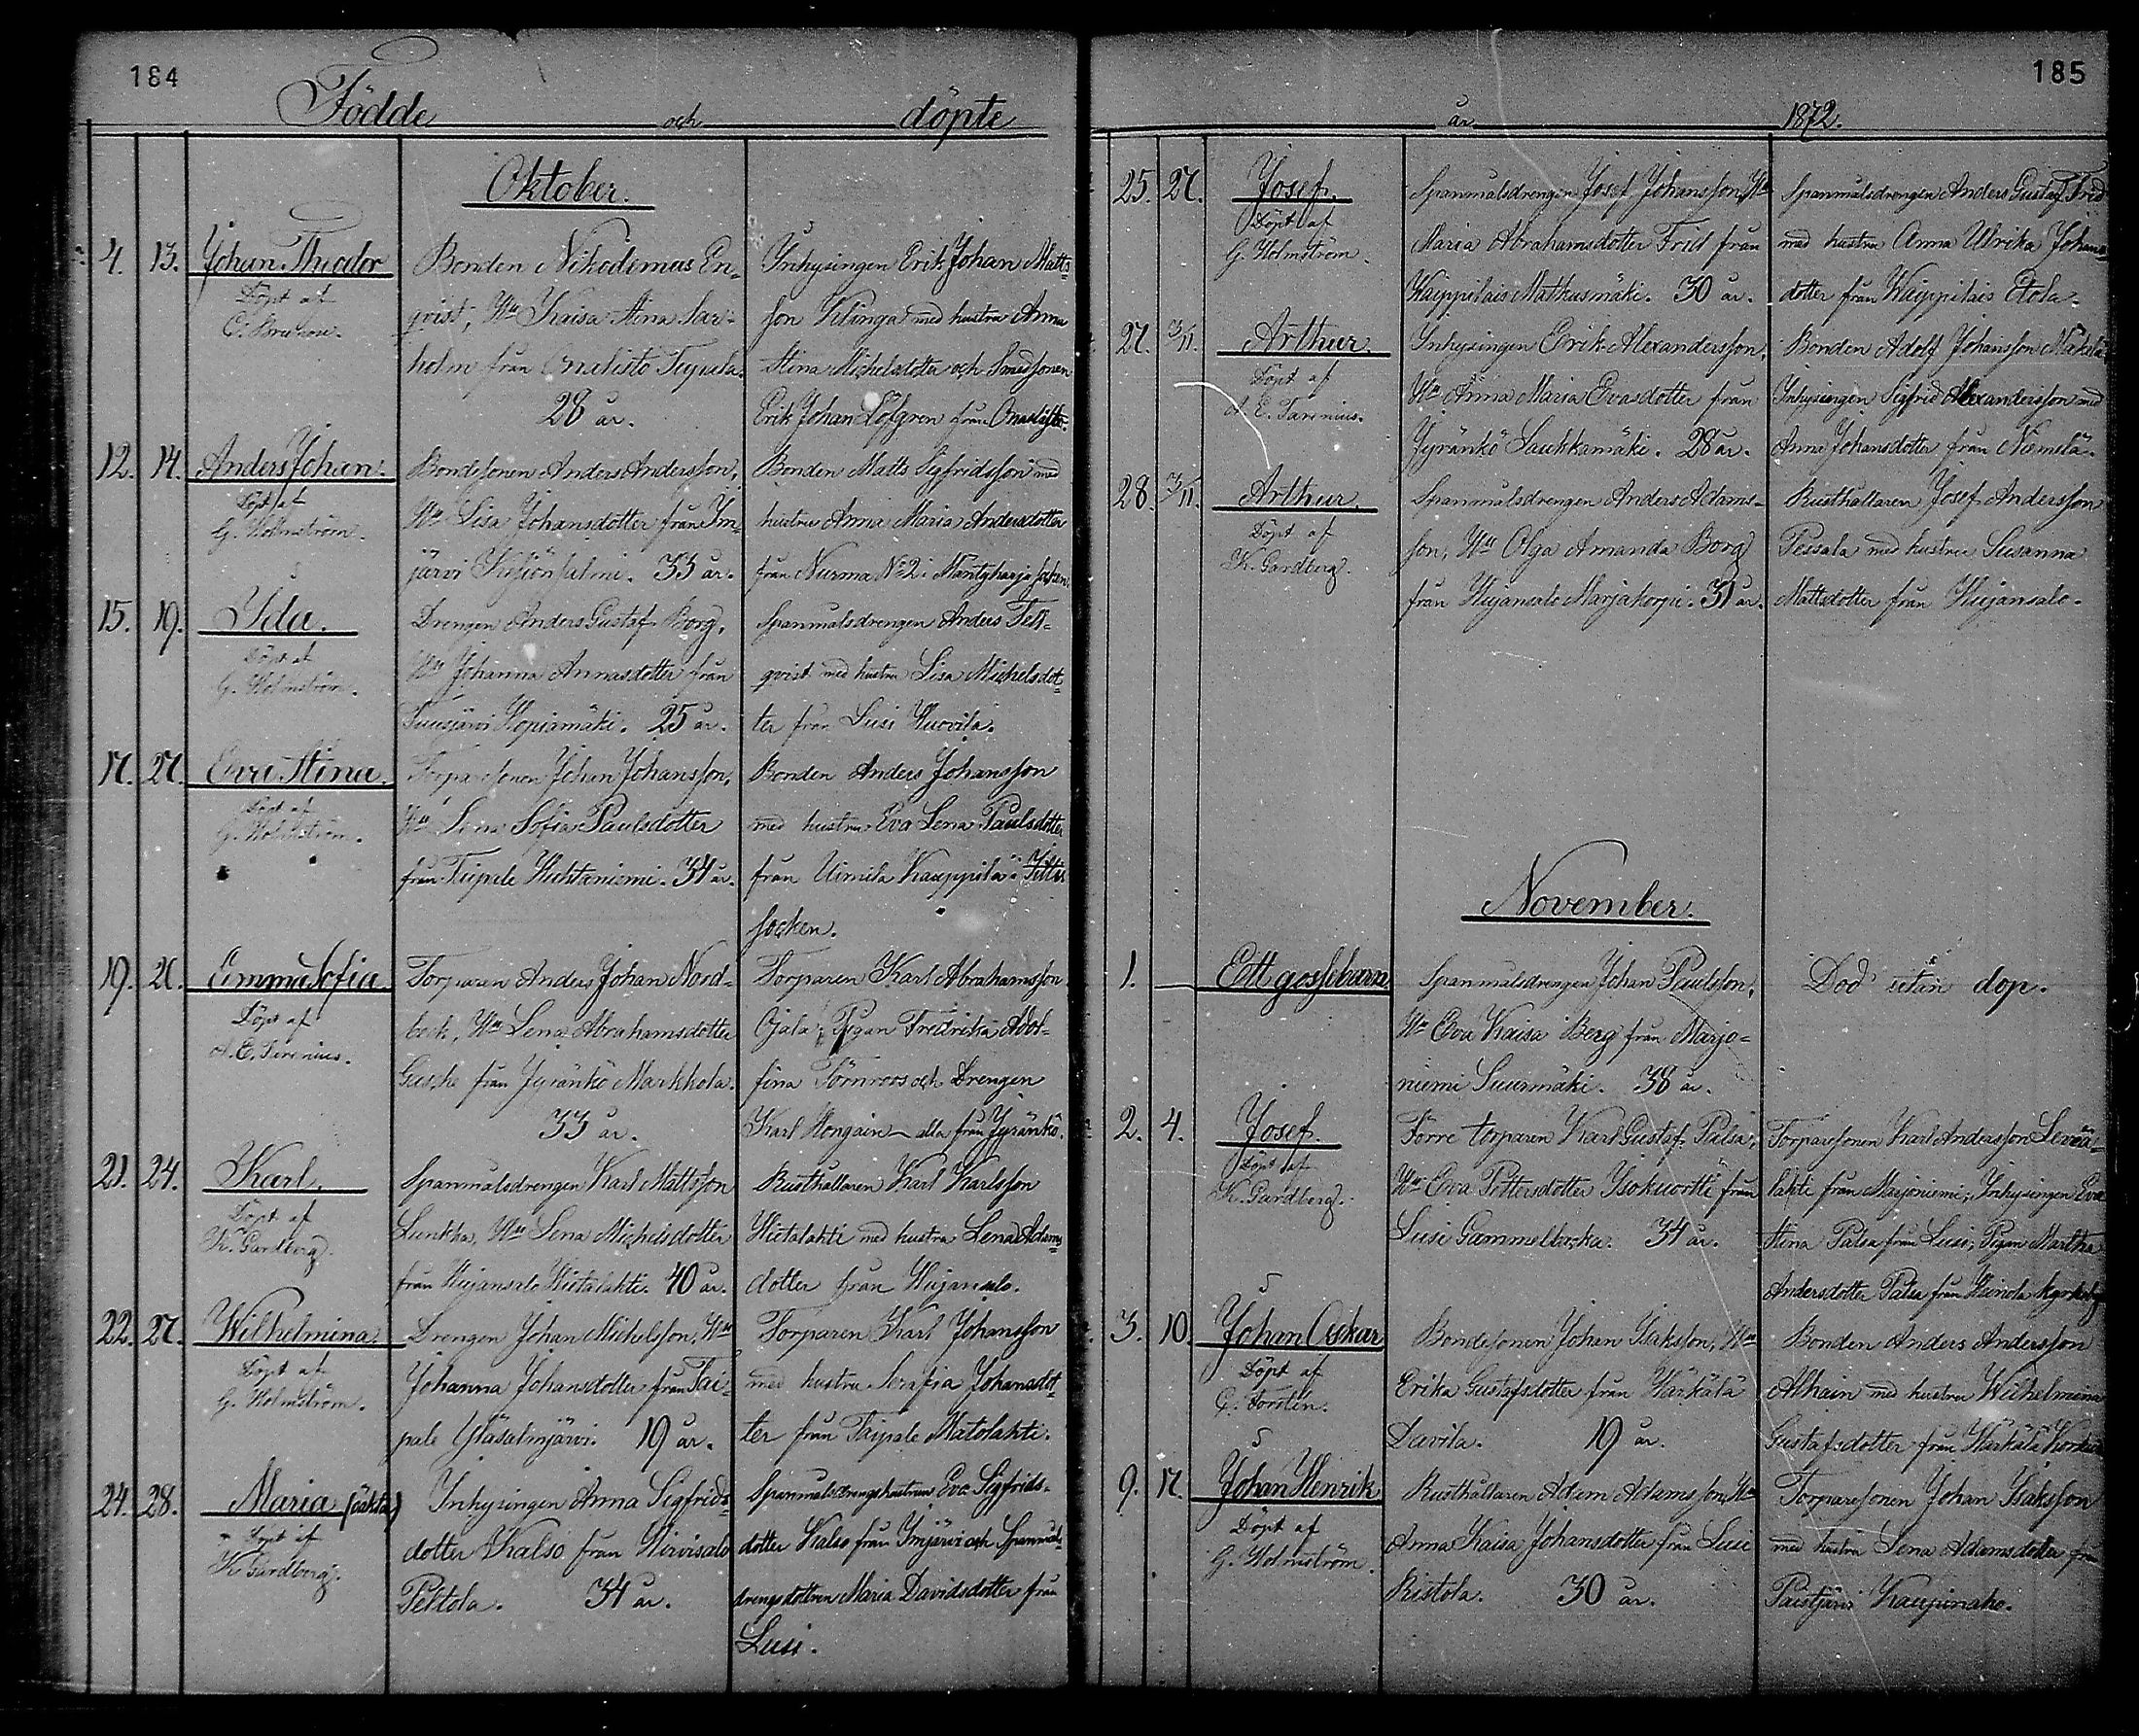 184
Födde och döpte
Oktober.
4. 13. Johan Theodor
Döpt af
Bonden Nikodemus En-
qvist, Hu Kaisa Stina Sar-
holm från Onalisto Tepula.
28 år.
Inhysingen Erik Johan Matts-
son Kilinga med hustru Anna
Stina Michelsdotter och Smedsonen
Erik Johan Löfgren från
12. 14. Anders Johan.
Döpt af
G. Holmström.
Bondesonen Anders Andersson,
Hu Lisa Johansdotter från Im-
järvi 33 år.
Bonden Matts Sigfridsson med
hustru Anna Maria Andersdotter
från Nurma No 2 i Mäntyharju socken.
15. 19. Ida.
Döpt af
G. Holmström.
Drengen Anders Gustaf Borg,
Hu Johanna Annasdotter från
Tuusjärvi Hopiamäki. 25 år.
Spanmålsdrengen Anders Felt-
qvist med hustru Lisa Michelsdot-
ter från Lusi Huovila.
17. 27. Eva Stina.
Döpt af
G. Holmström.
Torparesonen Johan Johansson,
Hu Lena Sofia Paulsdotter
från Taipale Huhtaniemi. 34 år.
Bonden Anders Johansson
med hustru Eva Lena Paulsdotter
från Uimila Kauppila i Jittis
socken.
19. 26. Emma Sofia
Döpt af
A. E. Tarenius.
Torparen Anders Johan Nord-
beck, Hu Lena Abrahamsdotter
från Jyränkö Markkola.
33 år.
Torparen Karl Abrahamsson
Ojala; Pigan Fredrika Adol-
fina Törnroos och Drengen
Karl Hongain alla från Jyränkö.
21. 24. Karl.
Döpt af
K. Gardberg.
Spanmålsdrengen Karl Mattsson
Lunkka, Hu Lena Michelsdotter
från Hujansalo Hietalahti. 40 år.
Rusthållaren Karl Karlsson
Hietalahti med hustru Lena Adams-
dotter från Hujansalo.
22. 27. Wilhelmina
Döpt af
G. Holmström.
Drengen Johan Michelsson, Hu
Johanna Johansdotter från Tai-
pale Yläsalmjärvi. 19 år.
Torparen Karl Johansson
med hustru Serafia Johansdot-
ter från Taipale Matolahti.
24. 28. Maria (oäkta)
Döpt af
K. Gardberg.
Inhysingen Anna Sigfrids-
dotter Kalso från Hirvisalo
Peltola. 34 år.
Spanmålsdrengshustrun Eva Sigfrids-
dotter Kalso från Imjärvi och Spanmåls-
drengsdottren Maria Davidsdotter från
Lusi.
185
år 1872.
25. 27. Josef.
Döpt af
G. Holmström.
Spanmålsdrengen Josef Johansson, Hu
Maria Abrahamsdotter Frid från
Waippilais Matkusmäki. 30 år.
Spanmålsdrengen Anders Gustaf Frid
med hustru Anna Ulrika Johans-
dotter från Waippilais Etola.
27. 3/11. Arthur.
Döpt af
A. E. Tarenius.
Inhysingen Erik Alexandersson,
Hu Anna Maria Evasdotter från
Jyränkö Saukkamäki. 28 år.
Bonden Adolf Johansson Mäkelä
Inhysingen Sigfrid Alexandersson med
Anna Johansdotter från Niemelä.
28. 3/11. Arthur.
Döpt af
K. Gardberg.
Spanmålsdrengen Anders Adams-
son, Hu Olga Amanda Borg
från Hujansalo Marjakorpi. 31 år.
Rusthållaren Josef Andersson
Pessala med hustru Susanna
Mattsdotter från Hujansalo.
November.
1. Ett gossebarn
Spanmålsdrengen Johan Paulsson,
Hu Eva Kaisa Berg från Marjo-
niemi Suurmäki. 38 år.
Död utan dop.
2. 4. Josef.
Döpt af
K. Gardberg.
Förre torparen Karl Gustaf Palsa,
Hu Eva Pettersdotter Isokuortti från
Lusi Gammelbacka. 34 år.
Torparesonen Karl Andersson Leveä-
lahti från Marjoniemi; Inhysingen Eva
Stina Palsa från Lusi; Pigan Martha
Andersdotter Palsa från Heinola kyrkoby
3. 10. Johan Oskar
Döpt af
C. Forstén.
Bondesonen Johan Isaksson, Hu
Erika Gustafsdotter från Härkälä
Davila. 19 år.
Bonden Anders Andersson
Alhain med hustru Wilhelmina
Gustafsdotter från Härkälä
9. 17. Johan Henrik
Döpt af
G. Holmström.
Rusthållaren Adam Adamsson, Hu
Anna Kaisa Johansdotter från Lusi
Ristola. 30 år.
Torparesonen Johan Isaksson
med hustru Lena Adamsdotter från
Paistjärvi Kaupinaho.